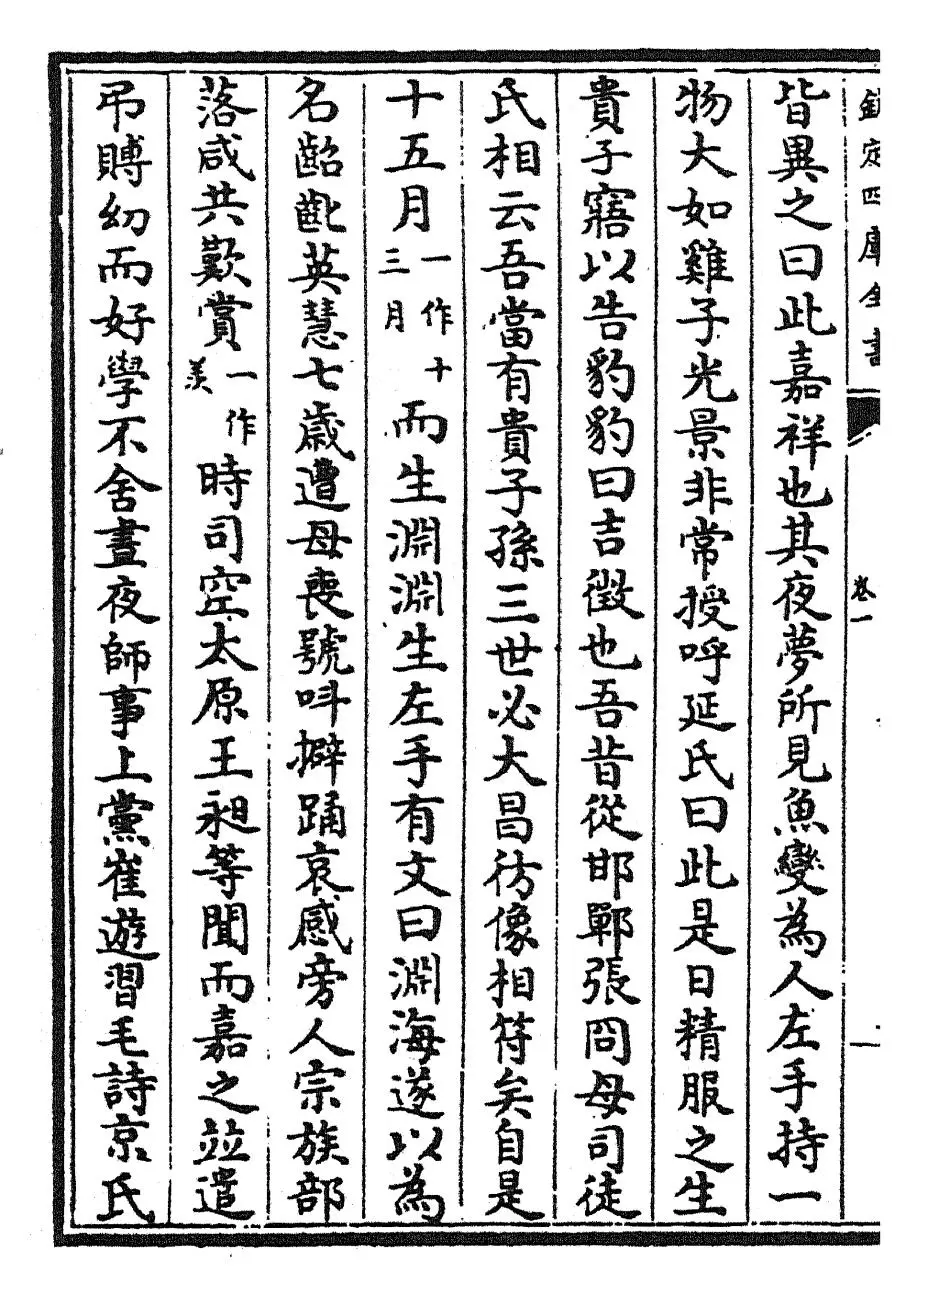 欽定四庫全書
卷一
皆異之曰此嘉祥也其夜夢所見魚變為人左手持一
物大如雞子光景非常授呼延氏曰此是日精服之生
貴子寤以告豹豹曰吉徵也吾昔從邯鄲張冏母司徒
氏相云吾當有貴子孫三世必大昌彷像相符矣自是
十五月一作十三月而生淵淵生左手有文曰淵海遂以為
名齠齔英慧七歲遭母喪號叫擗踊哀感旁人宗族部
落咸共歎賞一作羨時司空太原王昶等聞而嘉之並遣
弔賻幼而好學不舍晝夜師事上黨崔遊習毛詩京氏